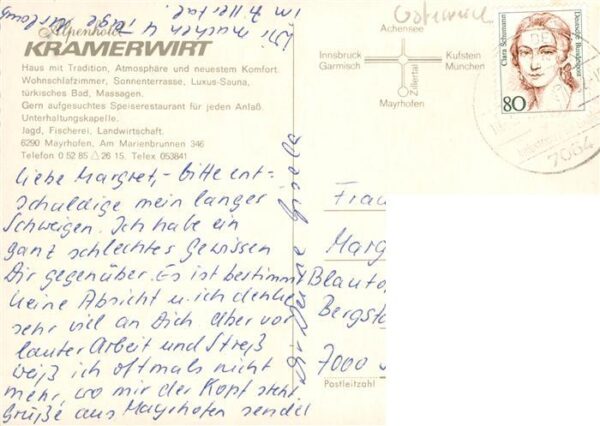 Alpenhotel
KRAMERWIRT
Haus mit Tradition, Atmosphäre und neuestem Komfort.
Wohnschlafzimmer, Sonnenterrasse, Luxus-Sauna,
türkisches Bad, Massagen.
Gern aufgesuchtes Speiserestaurant für jeden Anlaß.
Unterhaltungskapelle.
Jagd, Fischerei, Landwirtschaft.
6290 Mayrhofen, Am Marienbrunnen 346
Telefon 0 52 85 △ 26 15. Telex 053841
Liebe Margret,- bitte ent-
schuldige mein langes
Schweigen. Ich habe ein
ganz schlechtes Gewissen
Dir gegenüber. Es ist bestimmt
keine Absicht u. ich denke
sehr viel an Dich. Aber vor
lauter Arbeit und Streß
weiß ich oftmals nicht
mehr, wo mir der Kopf steht.
Grüße aus Mayrhofen sendet
Wir machen 4 Tage Urlaub
im Zillertal.
Österreich
Achensee
Innsbruck
Garmisch
Kufstein
München
Zillertal
Mayrhofen
Clara Schumann
Deutsche Bundespost
80
7064
Frau
Marg
Blauto
Bergst
7000
Postleitzahl